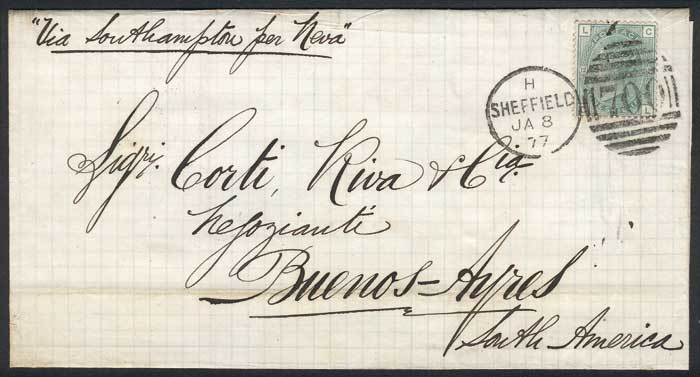 "Via Southampton per Neva"
L C
H
SHEFFIELD
JA 8
77
700
L
Sigri. Corti, Riva & Cia.
Negozianti
Buenos-Ayres
South America